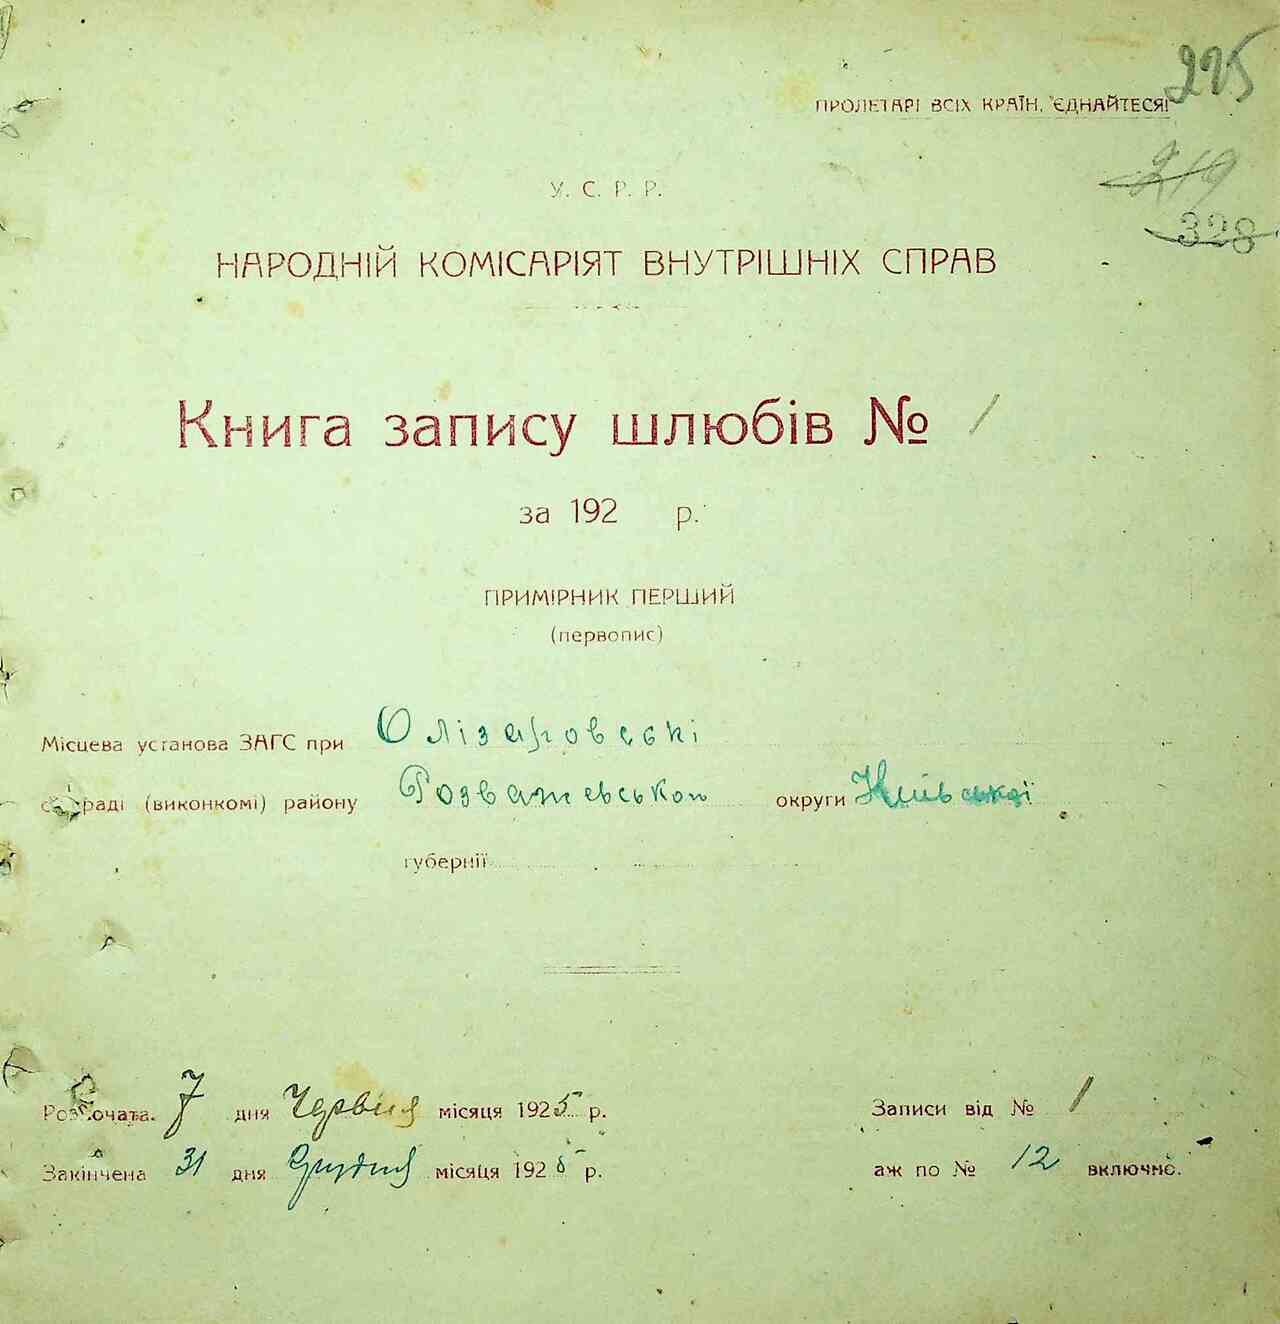 225
ПРОЛЕТАРІ ВСІХ КРАЇН, ЄДНАЙТЕСЯ!
219
328
У. С. Р. Р.
НАРОДНІЙ КОМІСАРІЯТ ВНУТРІШНІХ СПРАВ
Книга запису шлюбів № 1
за 192 р.
ПРИМІРНИК ПЕРШИЙ
(первопис)
Місцева установа ЗАГС при Олізаровські
раді (виконкомі) району Розважевською округи Київської
губернії
Розпочата 7 дня Червня місяця 1925 р. Записи від № 1
Закінчена 31 дня Грудня місяця 1925 р. аж по № 12 включно.